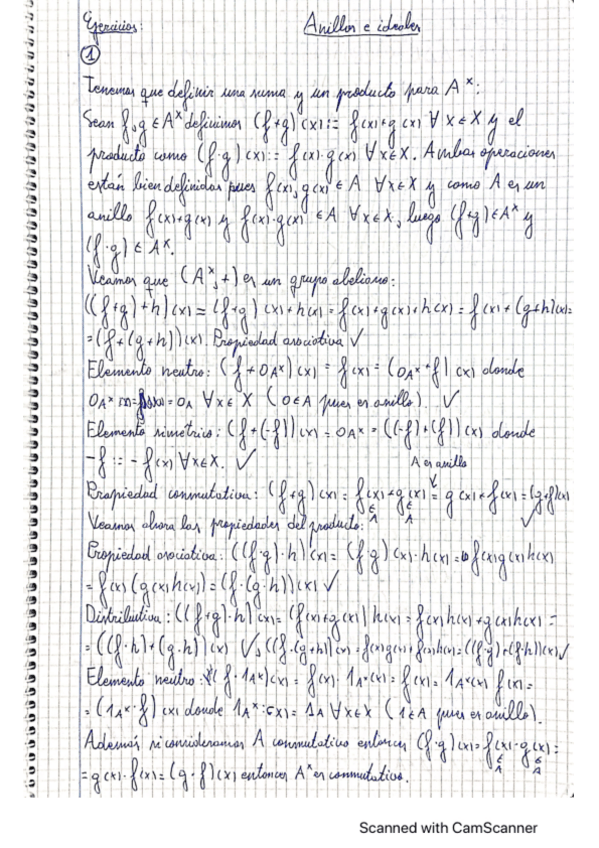 Ejercicios: Anillos e ideales
1
Tenemos que definir una suma y un producto para A^x:
Sean f,g ∈ A^x definimos (f+g)(x):= f(x)+g(x) ∀x∈X y el
producto como (f·g)(x):= f(x)·g(x) ∀x∈X. Ambas operaciones
están bien definidas pues f(x),g(x)∈A ∀x∈X y como A es un
anillo f(x)+g(x) y f(x)·g(x) ∈A ∀x∈X, luego (f+g)∈A^x y
(f·g)∈A^x.
Veamos que (A^x,+) es un grupo abeliano:
((f+g)+h)(x)=(f+g)(x)+h(x)=f(x)+g(x)+h(x)=f(x)+(g+h)(x)=
=(f+(g+h))(x). Propiedad asociativa ✓
Elemento neutro: (f+0_A^x)(x)=f(x)=(0_A^x+f)(x) donde
0_A^x =0_A ∀x∈X (0∈A pues es anillo). ✓
Elemento simétrico: (f+(-f))(x)=0_A^x=((-f)+(f))(x) donde
-f::=-f(x) ∀x∈X. ✓
A es anillo
Propiedad conmutativa: (f+g)(x)=f(x)+g(x)=g(x)+f(x)=(g+f)(x)
∈A ∈A ✓
Veamos ahora las propiedades del producto:
Propiedad asociativa: ((f·g)·h)(x)=(f·g)(x)·h(x)=f(x)g(x)h(x)
=f(x)(g(x)h(x))=(f·(g·h))(x) ✓
Distributiva: ((f+g)·h)(x)=(f(x)+g(x))h(x)=f(x)h(x)+g(x)h(x)=
=((f·h)+(g·h))(x) ✓, ((f·(g+h))(x)=f(x)g(x)+f(x)h(x)=((f·g)+(f·h))(x) ✓
Elemento neutro: (f·1_A^x)(x)=f(x)·1_A^x(x)=f(x)=1_A^x(x)f(x)=
=(1_A^x·f)(x) donde 1_A^x:(x)=1_A ∀x∈X (1∈A pues es anillo).
Además si consideramos A conmutativo entonces (f·g)(x)=f(x)·g(x)=
∈A ∈A
=g(x)·f(x)=(g·f)(x) entonces A^x es conmutativo.
Scanned with CamScanner